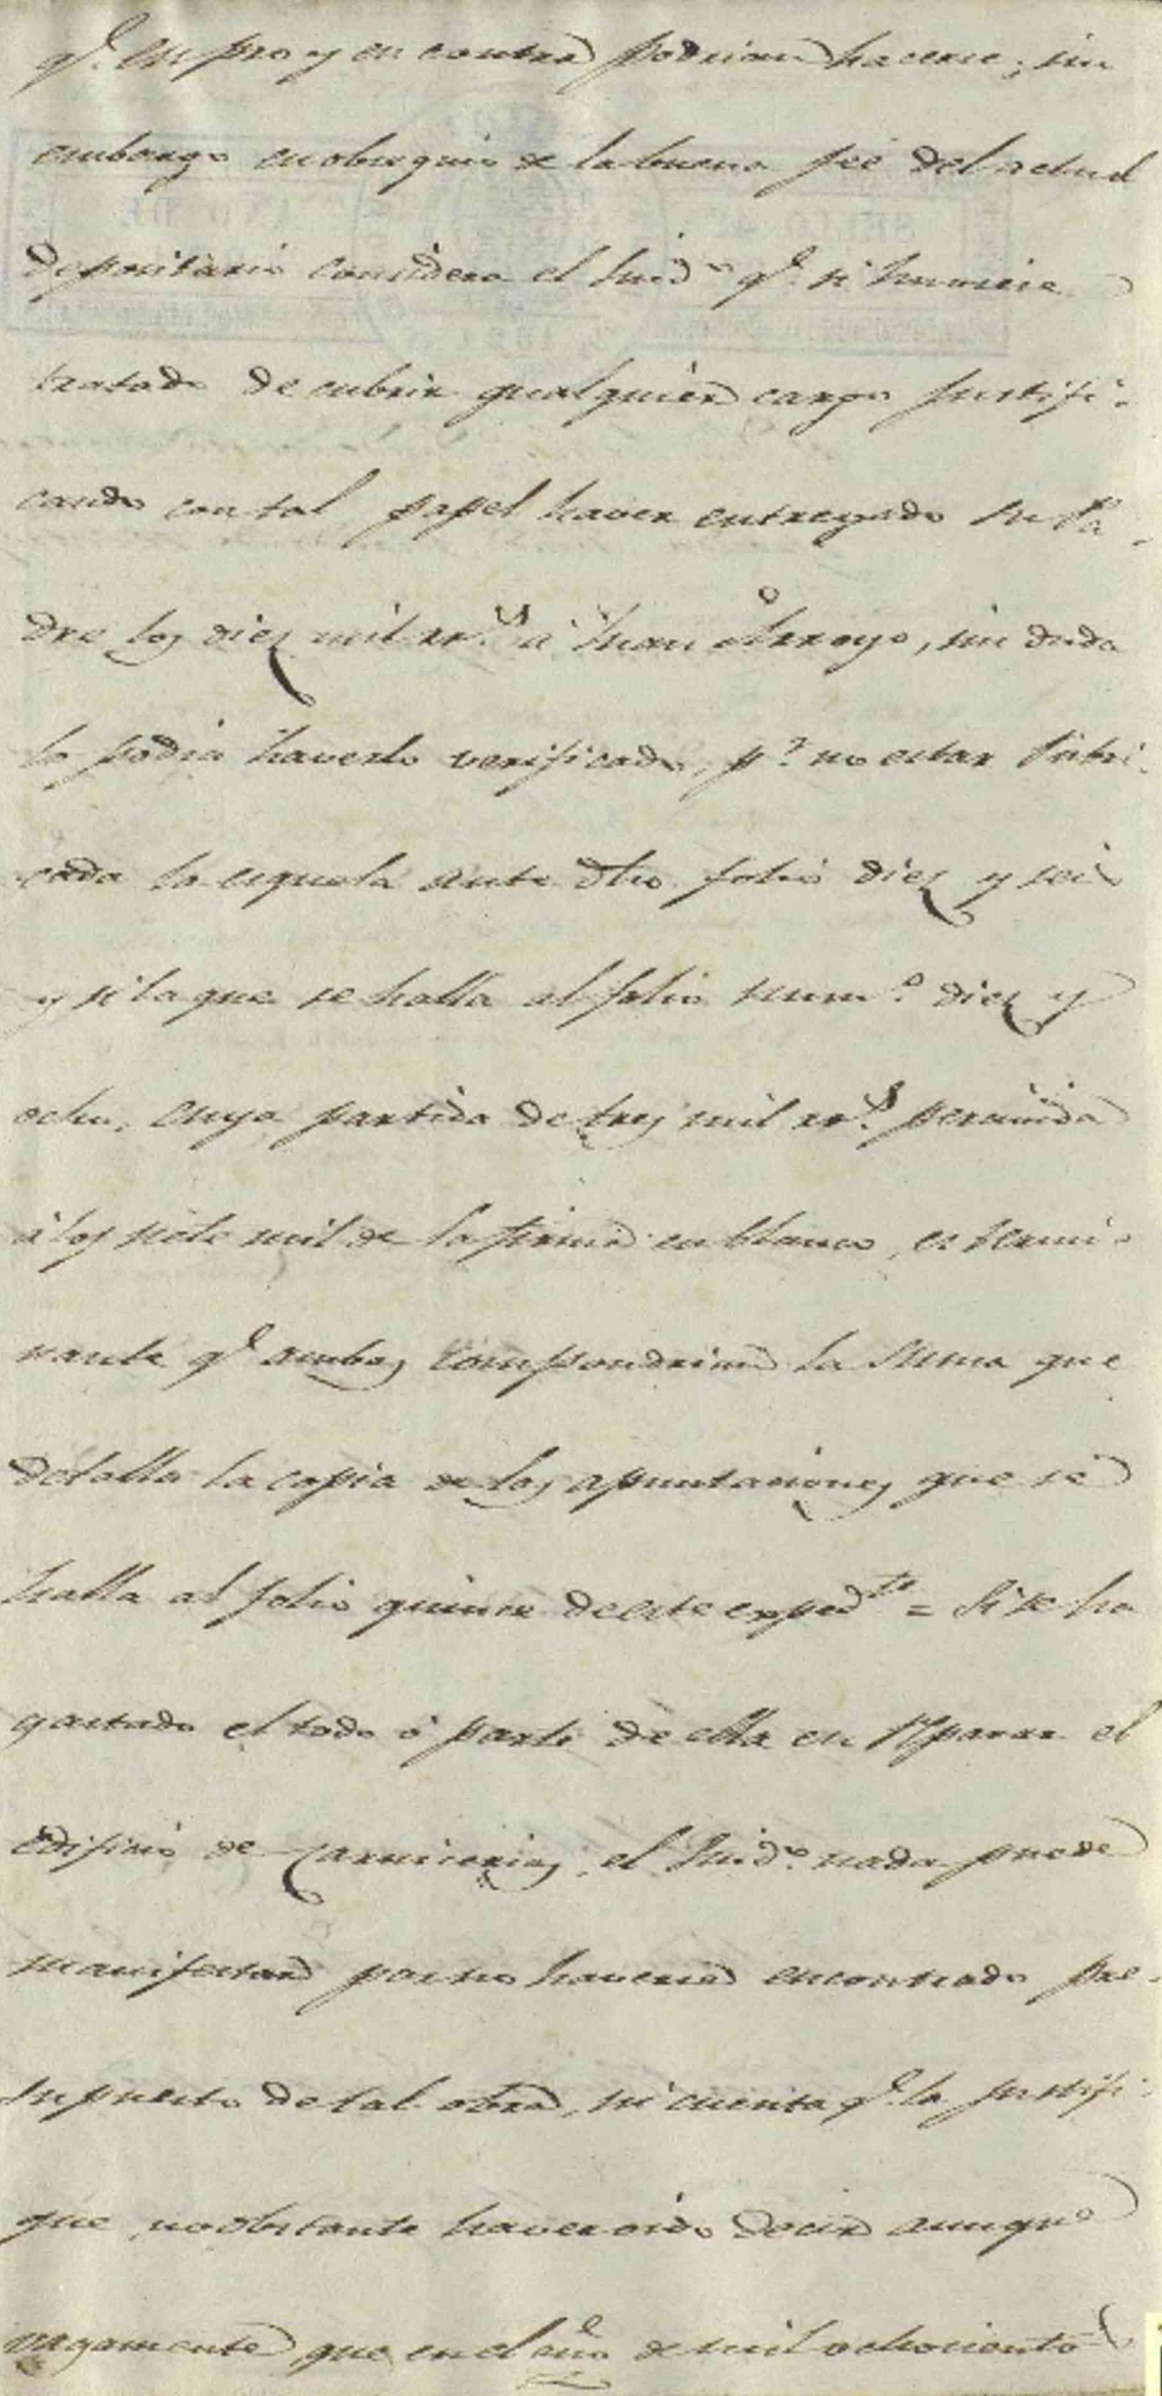 q.e en pro y en contra podrian hacerse; sin
embargo en obsequio de la buena feé del actual
depositario considera el Sind.o q.e si huviese
tratado de cubrir qualquier cargo justifi-
cando con tal papel haver entregado su Pa-
dre los diez mil rr.s a Juan Arroyo, sin duda
lo podia haverlo verificado, p.r no estar rubri-
cada la esquela ante dho folio diez y seis
y si la que se halla al folio num.o diez y
ocho, cuya partida de tres mil rr.s reunida
á los siete mil de la firma en blanco, es termi-
nante q.e ambas compondrian la suma que
detalla la copia de las apuntaciones que se
halla al folio quince de este exped.te = Si se ha
gastado el todo ó parte de ella en reparar el
edificio de Carnicerias, el Sind.o nada puede
manifestar por no haverse encontrado pre-
supuesto de tal obra, ni cuenta q.e la justifi-
que, no obstante haver oido decir aunque
vagamente que en el año de mil ochocientos